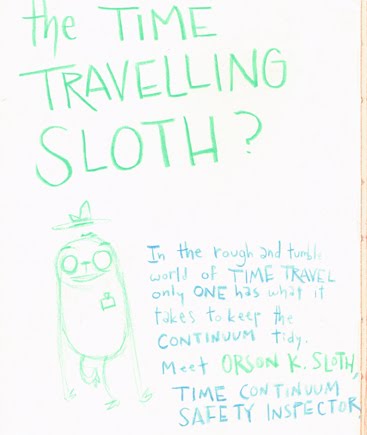 the TIME
TRAVELLING
SLOTH?
In the rough and tumble
world of TIME TRAVEL
only ONE has what it
takes to keep the
CONTINUUM tidy.
Meet ORSON K. SLOTH,
TIME CONTINUUM
SAFETY INSPECTOR